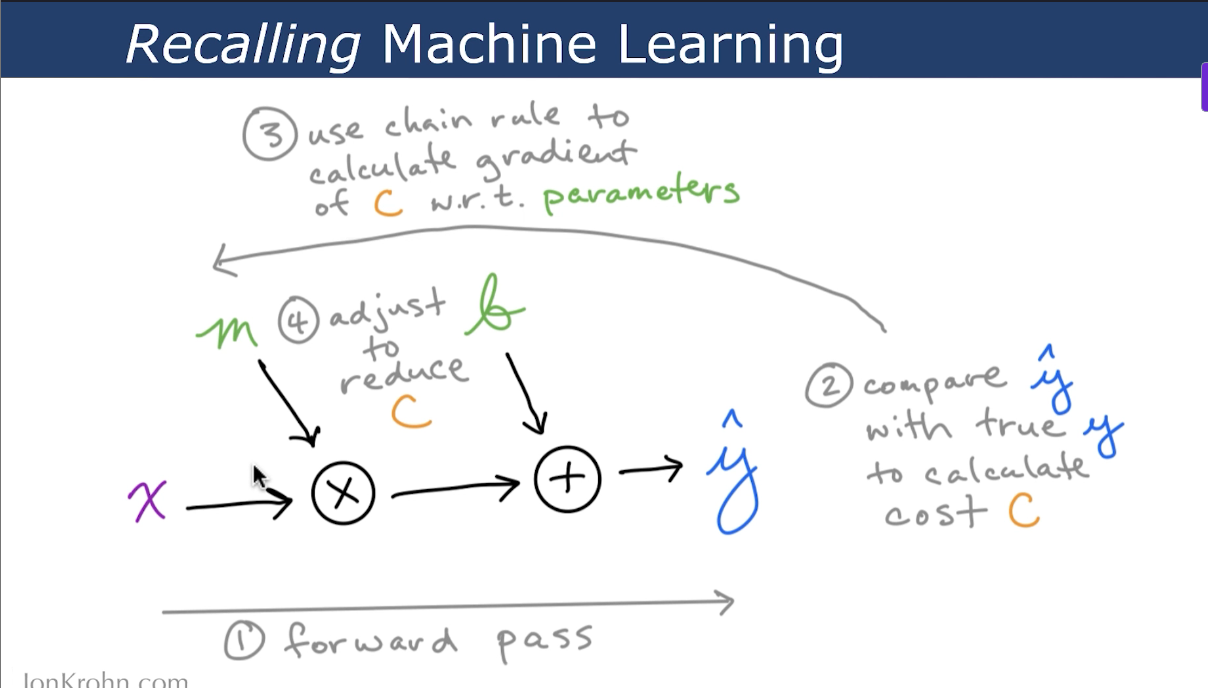 Recalling Machine Learning
③ use chain rule to
calculate gradient
of C w.r.t. parameters
m
④ adjust
to
reduce
C
b
② compare ŷ
with true y
to calculate
cost C
x
×
+
ŷ
① forward pass
JonKrohn.com